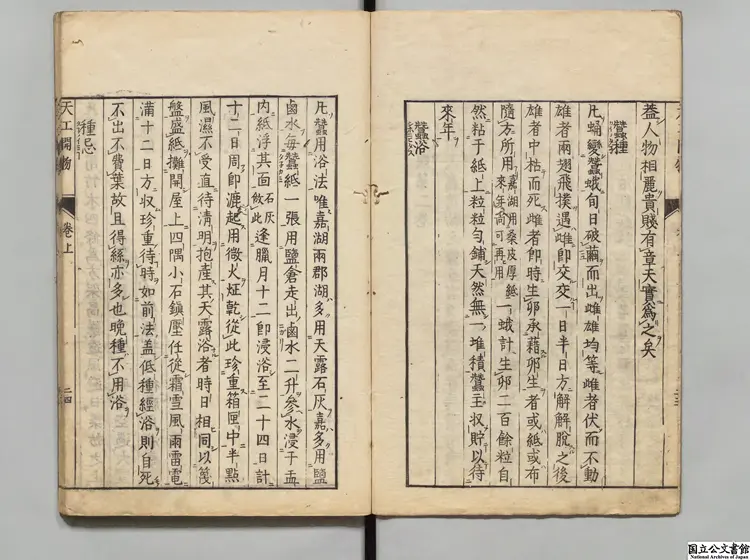 蓋人物相麗貴賤有章天實爲之矣
蠶種
凡蛹變蠶蛾旬日破繭而出雌雄均等雌者伏而不動
雄者兩翅飛撲遇雌即交交一日半日方解解脫之後
雄者中枯而死雌者即時生卵承藉卵生者或紙或布
隨方所用嘉湖用桑皮厚紙來年尚可再用一蛾計生卵二百餘粒自
然粘于紙上粒粒勻鋪天然無一堆積蠶主収貯以待
來年
蠶浴
凡蠶用浴法唯嘉湖兩郡湖多用天露石灰嘉多用鹽
鹵水每蠶紙一張用鹽倉走出鹵水二升參水浸于盂
內紙浮其面石灰倣此逢臘月十二即浸浴至二十四日計
十二日周即漉起用微火炡乾從此珍重箱匣中半點
風濕不受直待清明抱產其天露浴者時日相同以篾
盤盛紙攤開屋上四隅小石鎮壓任從霜雪風雨雷電
滿十二日方収珍重待時如前法蓋低種經浴則自死
不出不費葉故且得絲亦多也晚種不用浴
種忌
天工開物
卷上
二四
国立公文書館
National Archives of Japan